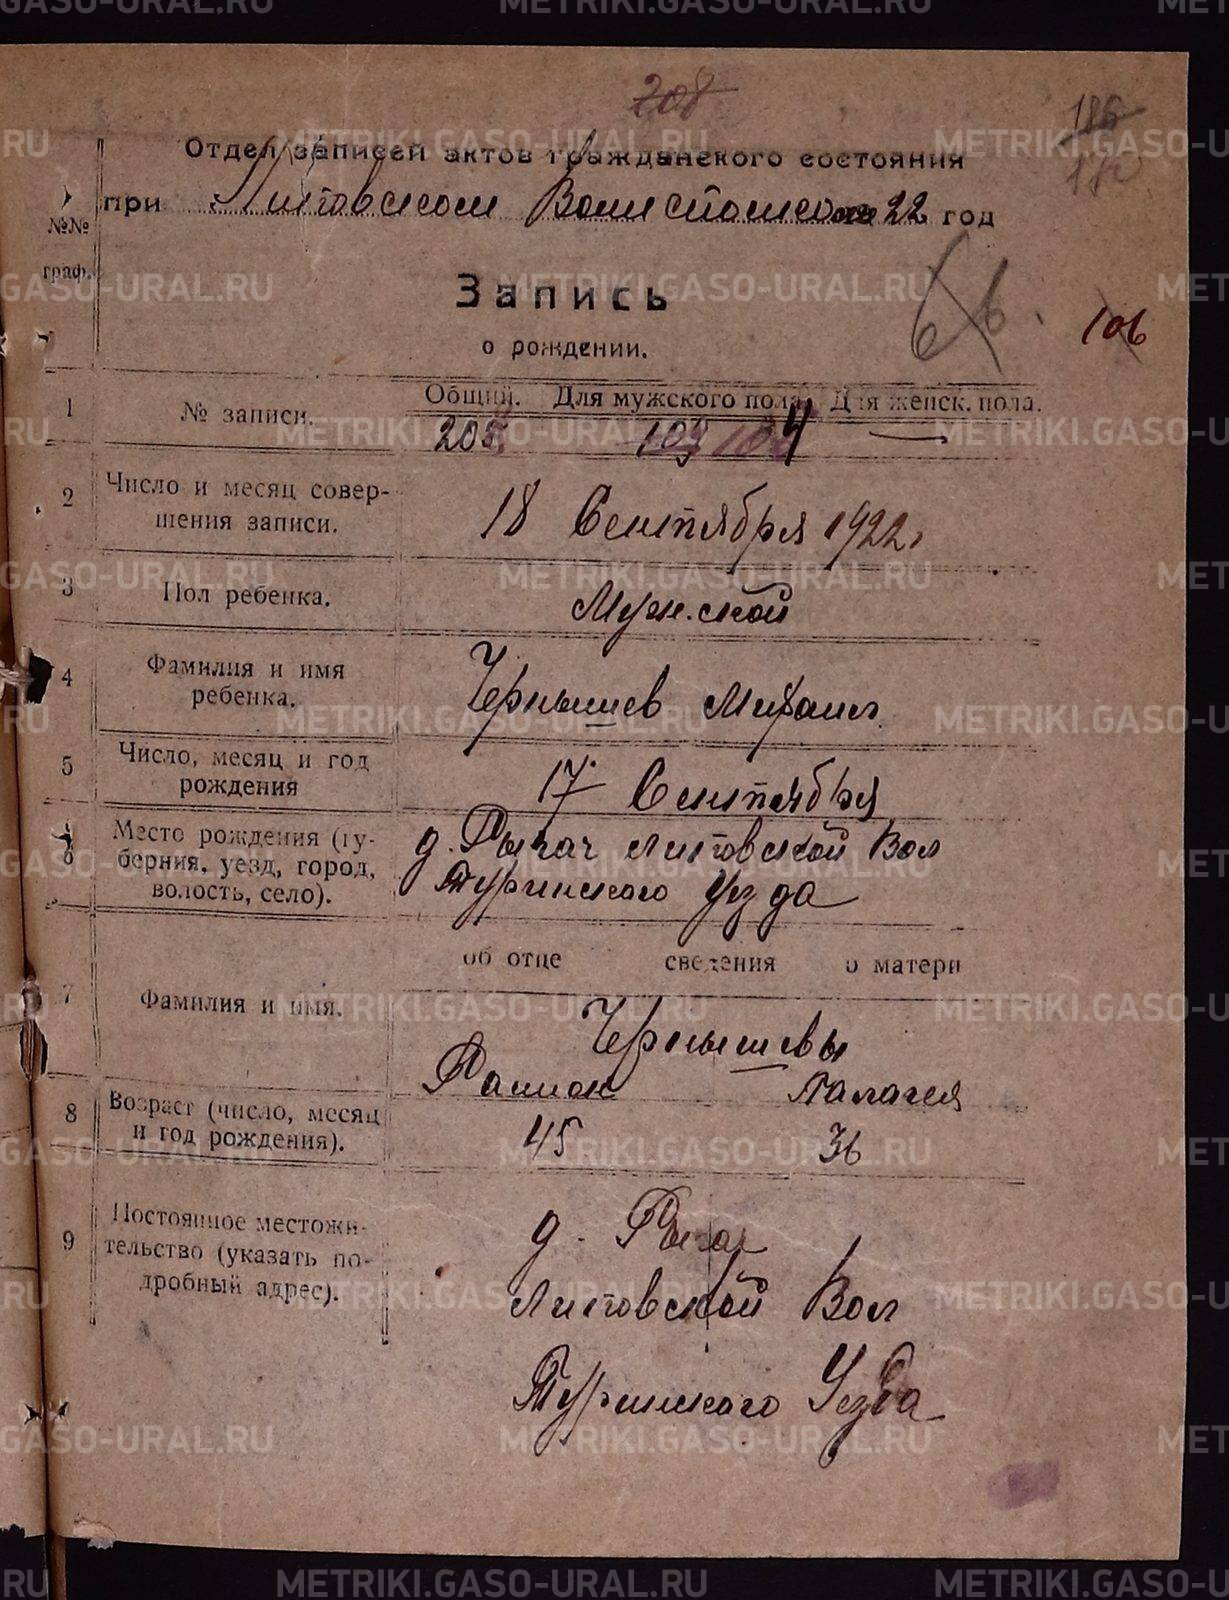 208
186
180
Отдел записей актов гражданского состояния
при Липовском Волисполкоме 22 год
№№ граф.
Запись
о рождении.
66.
106
Общий. Для мужского пола. Для женск. пола.
1 № записи. 205 103 104 —
2 Число и месяц совер-
шения записи. 18 Сентября 1922 г
3 Пол ребенка. Мужской
4 Фамилия и имя
ребенка. Чернышев Михаил
5 Число, месяц и год
рождения 17 Сентября
6 Место рождения (гу-
берния, уезд, город,
волость, село).
д. Рычач Липовской Вол
Туринского Уезда
об отце сведения о матери
7 Фамилия и имя.
Чернышевы
Палагея
8 Возраст (число, месяц
и год рождения). 45 36
9 Постоянное местожи-
тельство (указать по-
дробный адрес).
д.
Липовской Вол
Туринского Уезда
METRIKI.GASO-URAL.RU